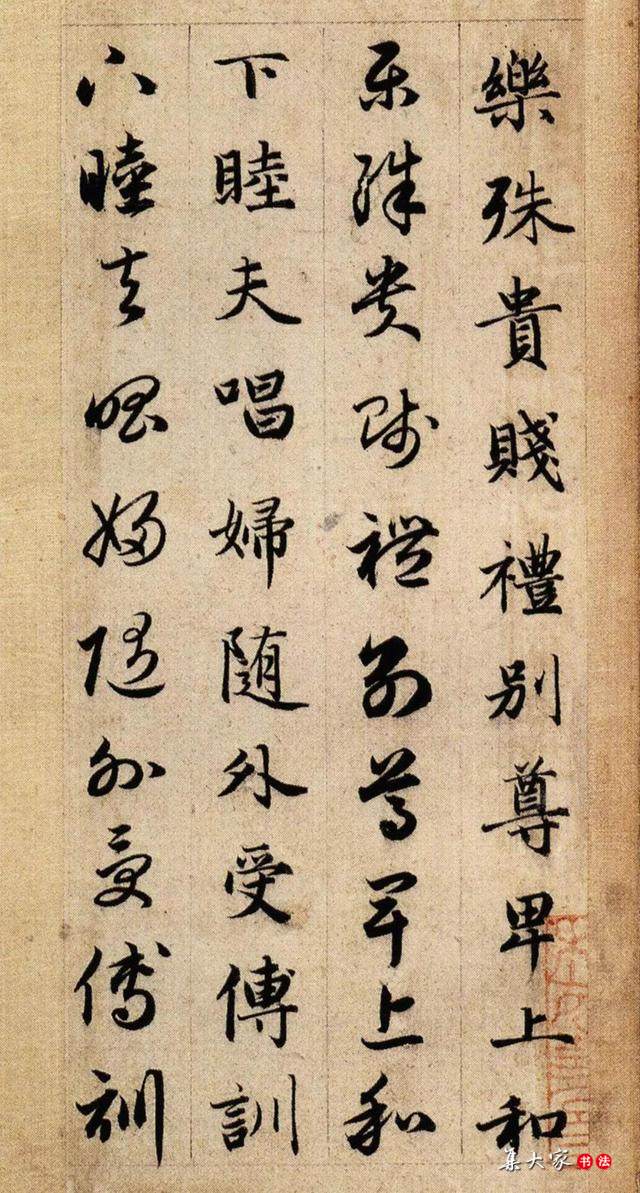 樂殊貴賤禮別尊卑上和
樂殊貴賤禮別尊卑上和
下睦夫唱婦随外受傅訓
下睦夫唱婦随外受傅訓
集大家书法